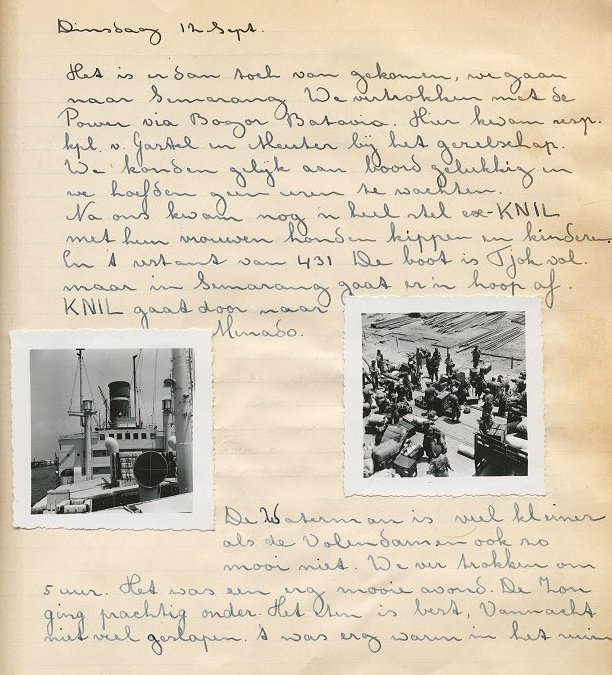 Dinsdag 12 Sept.
Het is er dan toch van gekomen, we gaan
naar Semarang. We vertrokken met de
Power via Bogor Batavia. Hier kwam resp.
kpl. v. Gastel en Meuter bij het gezelschap.
We konden gelijk aan boord gelukkig en
we hoefden geen uren te wachten.
Na ons kwam nog 'n heel stel ex-KNIL
met hun vrouwen honden kippen en kinderen.
En 't restant van 431 De boot is Tjok vol.
maar in Semarang gaat er 'n hoop af.
KNIL gaat door naar
Menado.
De Waterman is veel kleiner
als de Volendam en ook zo
mooi niet. We vertrokken om
5 uur. Het was een erg mooie avond. De Zon
ging prachtig onder. Het eten is best, Vannacht
niet veel geslapen, 't was erg warm in het ruim